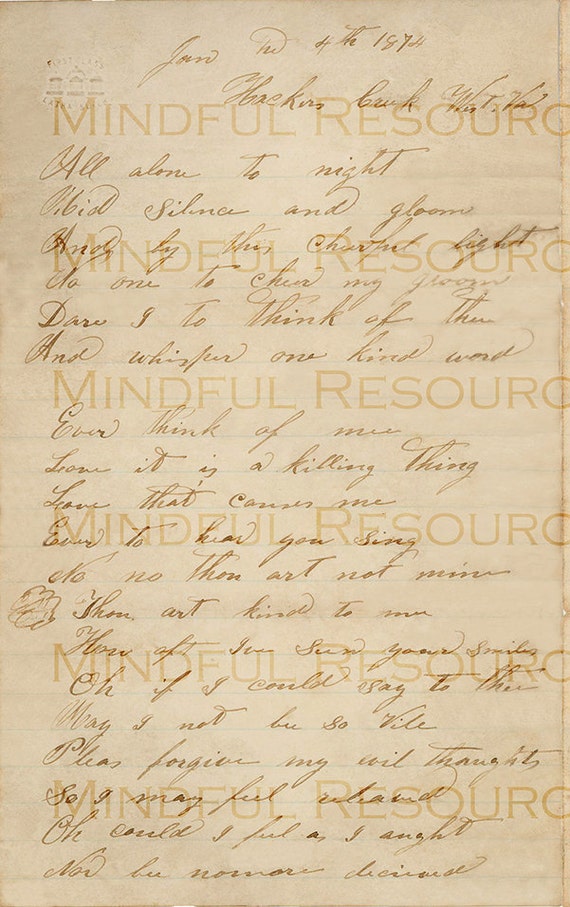 Jan the 4th 1874
Hackers Creek West. Va
MINDFUL RESOURC
All alone to night
Mid silence and gloom
And by this cheerful light
MINDFUL RESOURC
No one to cheer my gloom
Dare I to think of thee
And whisper one kind word
MINDFUL RESOURC
Ever think of mee
Love it is a killing thing
Love that causes me
MINDFUL RESOURC
Ever to hear you sing
No no thou art not mine
Thou art kind to me
How oft Ive seen your smiles
MINDFUL RESOURC
Oh if I could say to thee
May I not be so Vile
Pleas forgive my evil thoughts
So I may feel relieved
MINDFUL RESOURC
Oh could I feel as I aught
Nor bee nomore decieved